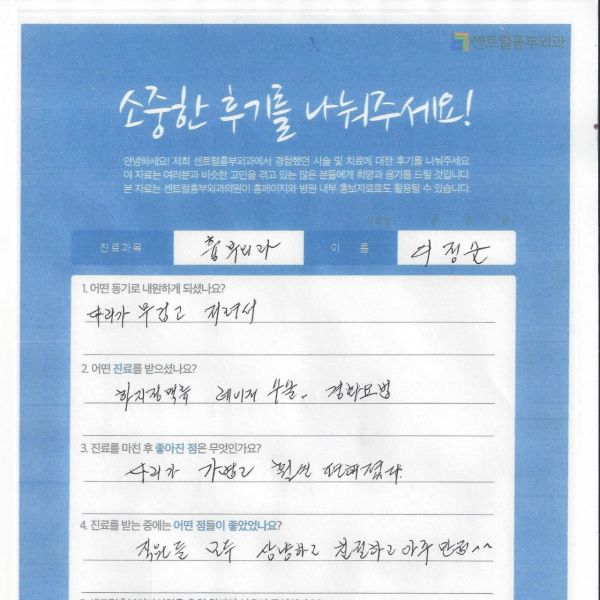 센트럴흉부외과
소중한 후기를 나눠주세요!
안녕하세요! 저희 센트럴흉부외과에서 경험했던 시술 및 치료에 대한 후기를 나눠주세요.
이 자료는 여러분과 비슷한 고민을 겪고 있는 많은 분들에게 희망과 용기를 드릴 것입니다.
본 자료는 센트럴흉부외과의원이 홈페이지와 병원 내부 홍보자료로도 활용될 수 있습니다.
진료과목 흉부외과 이 름 이정순
1. 어떤 동기로 내원하게 되셨나요?
다리가 무겁고 저려서
2. 어떤 진료를 받으셨나요?
하지정맥류 레이저 수술. 경화요법
3. 진료를 마친 후 좋아진 점은 무엇인가요?
다리가 가볍고 훨씬 편해졌다.
4. 진료를 받는 중에는 어떤 점들이 좋았었나요?
직원들 모두 상냥하고 친절하고 아주 만족^^